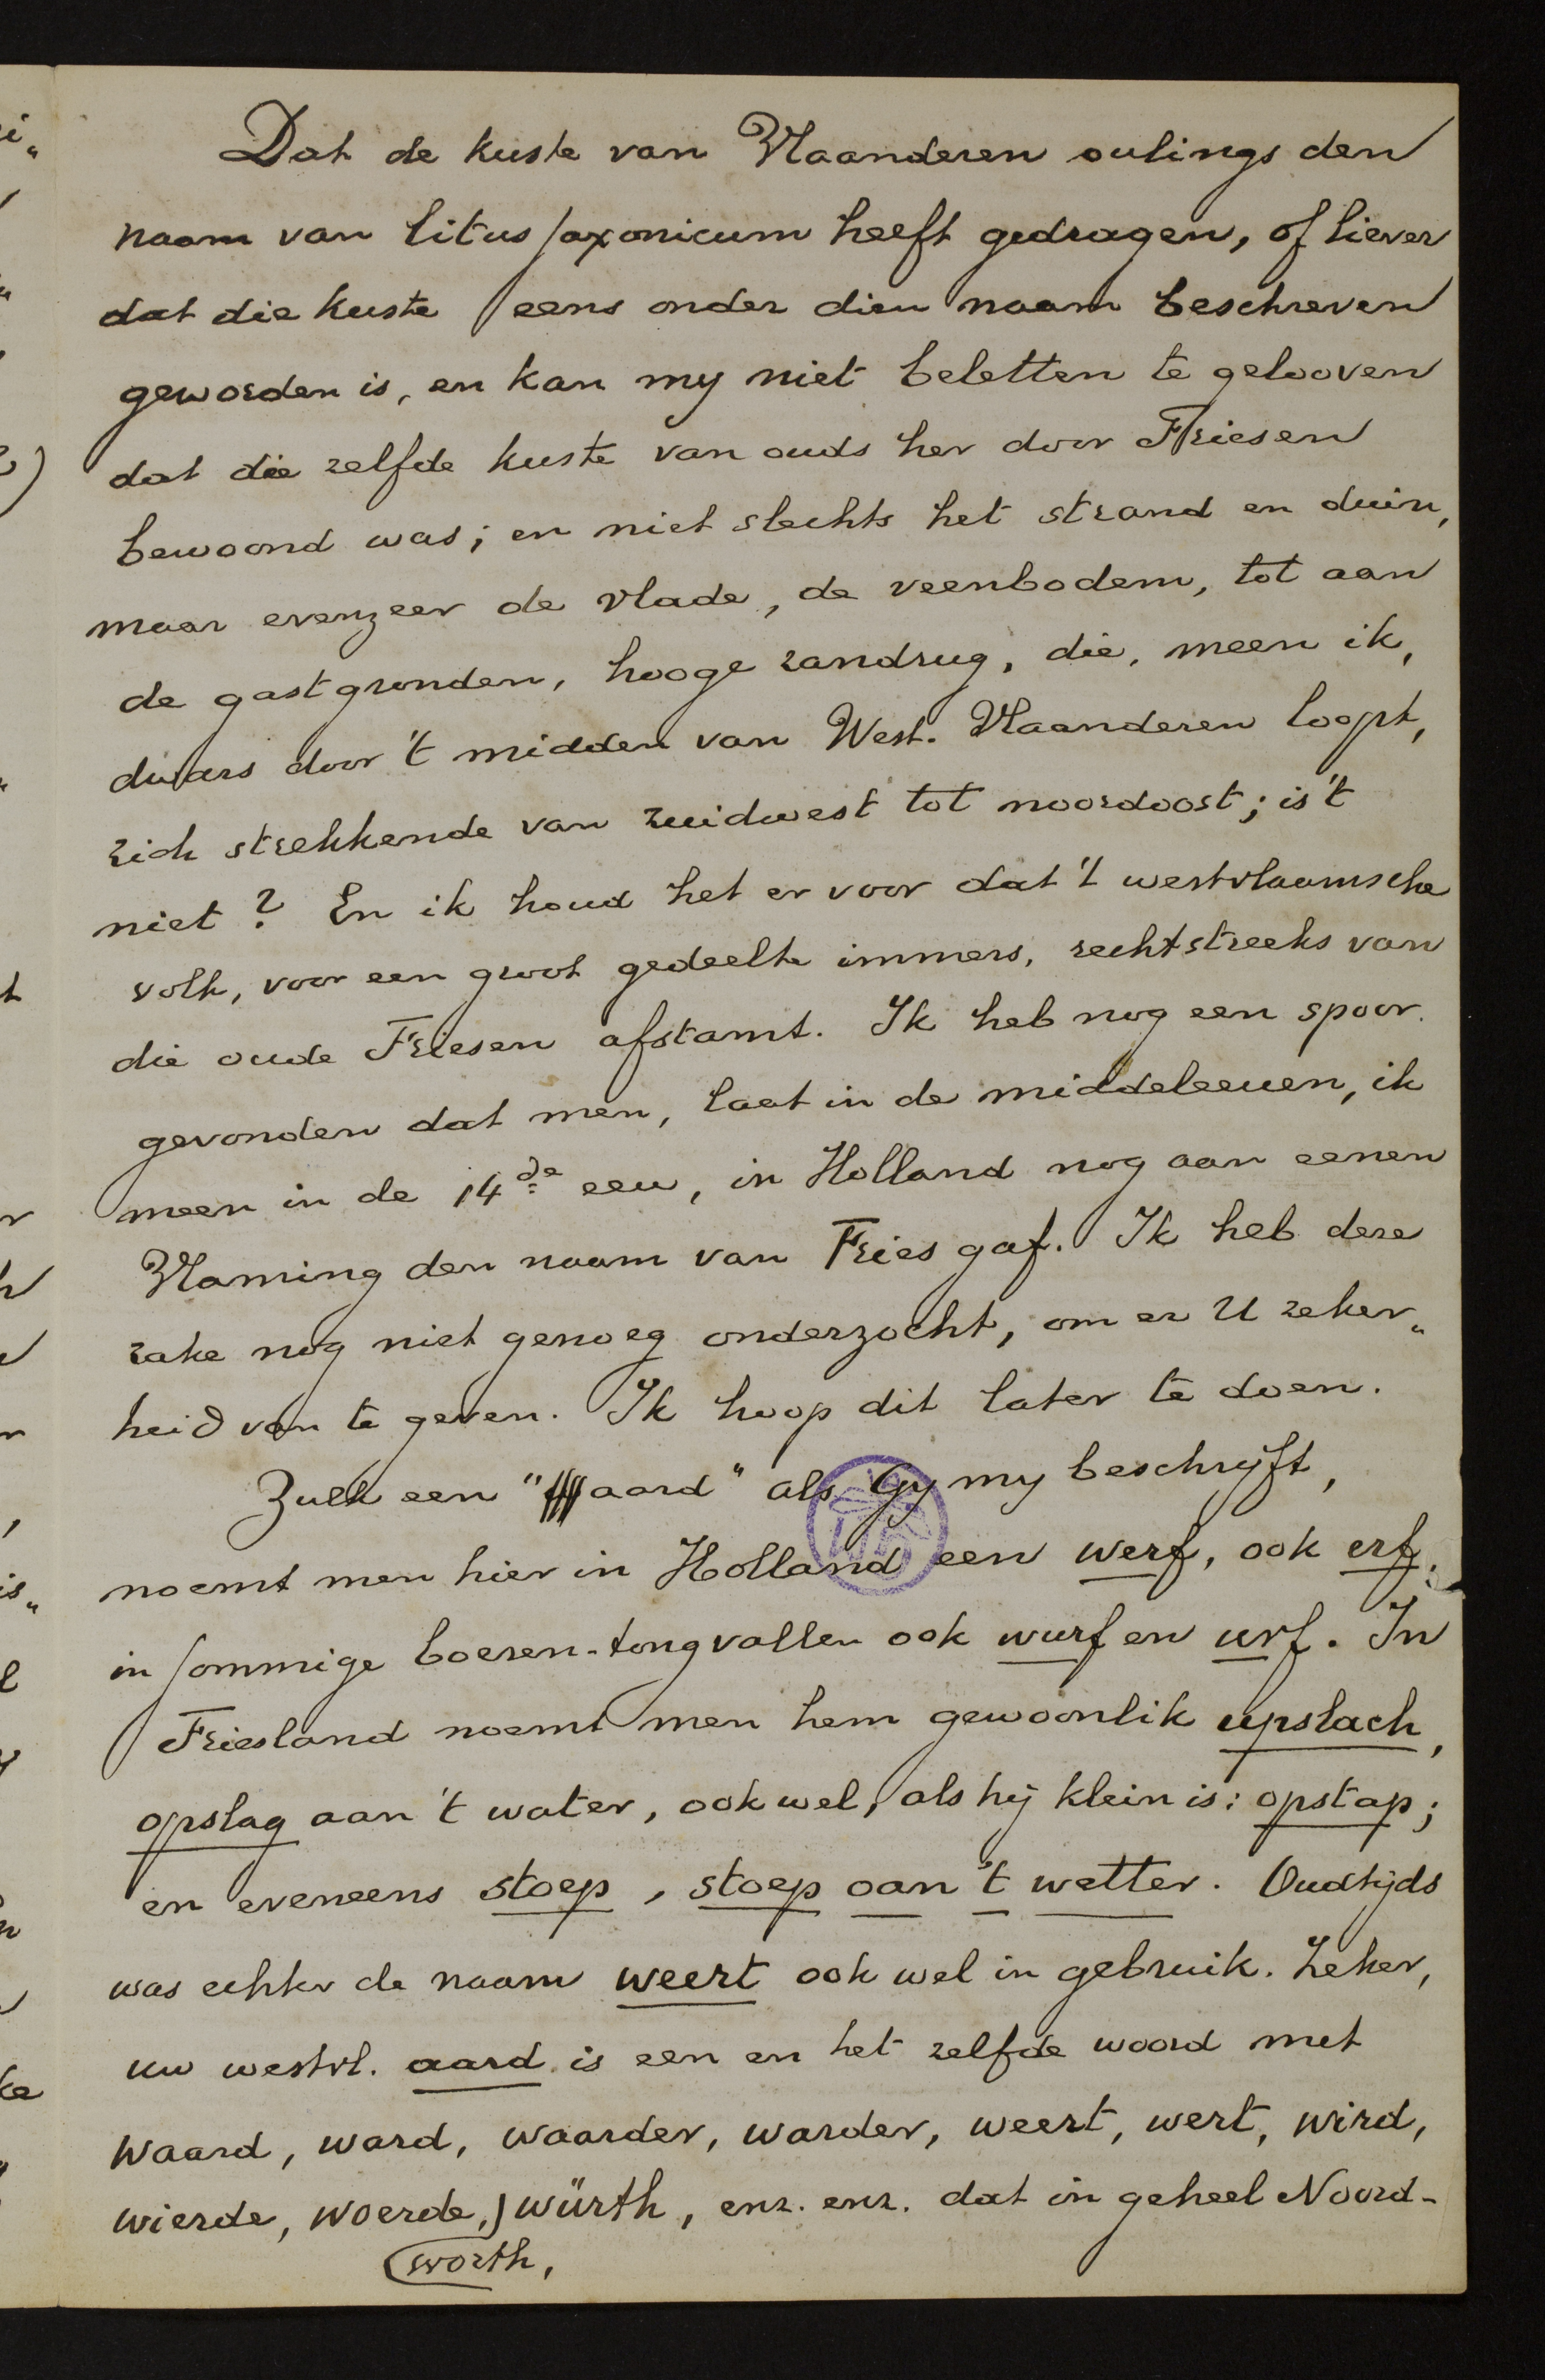 Dat de kuste van Vlaanderen oulings den
naam van litus saxonicum heeft gedragen, of liever
dat die kuste eens onder dien naam beschreven
geworden is, en kan my niet beletten te gelooven
dat die zelfde kuste van ouds her door Friesen
bewoond was; en niet slechts het strand en duin,
maar evenzeer de vlade, de veenbodem, tot aan
de gastgronden, hooge zandrug, die, meen ik,
dwars door 't midden van West-Vlaanderen loopt,
zich strekkende van zuidwest tot noordoost; is 't
niet? En ik houd het er voor dat 't westvlaamsche
volk, voor een groot gedeelte immers, rechtstreeks van
die oude Friesen afstamt. Ik heb nog een spoor
gevonden dat men, laat in de middeleeuen, ik
meen in de 14de eeu, in Holland nog aan eenen
Vlaming den naam van Fries gaf. Ik heb deze
zake nog niet genoeg onderzocht, om er U zeker„
heid van te geven. Ik hoop dit later te doen.
Zulk een "aard" als Gy my beschrijft,
noemt men hier in Holland een werf, ook erf,
in sommige boeren-tongvallen ook wurf en urf. In
Friesland noemt men hem gewoonlik upslach,
opslag aan 't water, ook wel, als hij klein is: opstap;
en eveneens stoep, stoep oan 't wetter. Oudtijds
was echter de naam weert ook wel in gebruik. Zeker,
uw westvl. aard is een en het zelfde woord met
waard, ward, waarder, warder, weert, wert, wird,
wierde, woerde, würth, enz. enz. dat in geheel Noord-
worth,